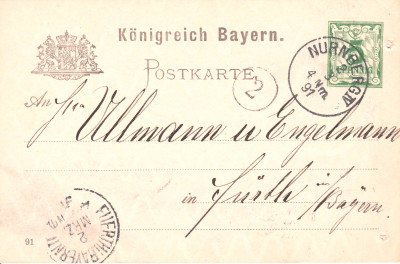 Königreich Bayern.
POSTKARTE
2
NÜRNBERG IV
4 Nm.
91
An Hrn
Ullmann u Engelmann
in Fürth in Bayern.
FUERTH(BAYERN)
MRZ
91